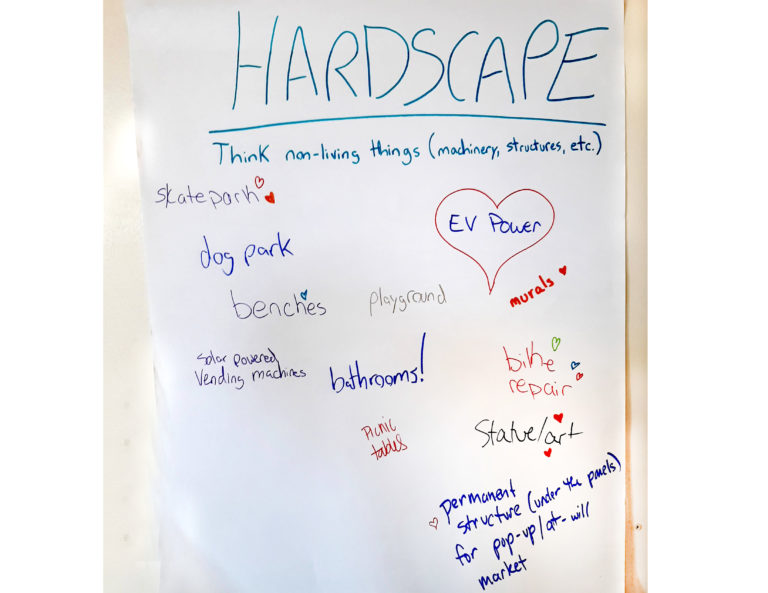 HARDSCAPE
Think non-living things (machinery, structures, etc.)
skatepark
EV Power
dog park
benches
playground
murals
solar powered
Vending machines
bathrooms!
bike
repair
Picnic
tables
Statue/art
permanent
structure (under the panels)
for pop-up/at-will
market